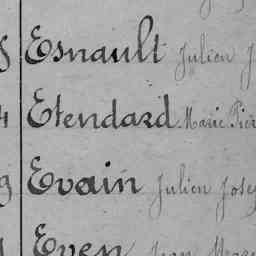 Esnault Julien J
Etendard Marie Pier
Evain Julien Josep
Even Jean Marie